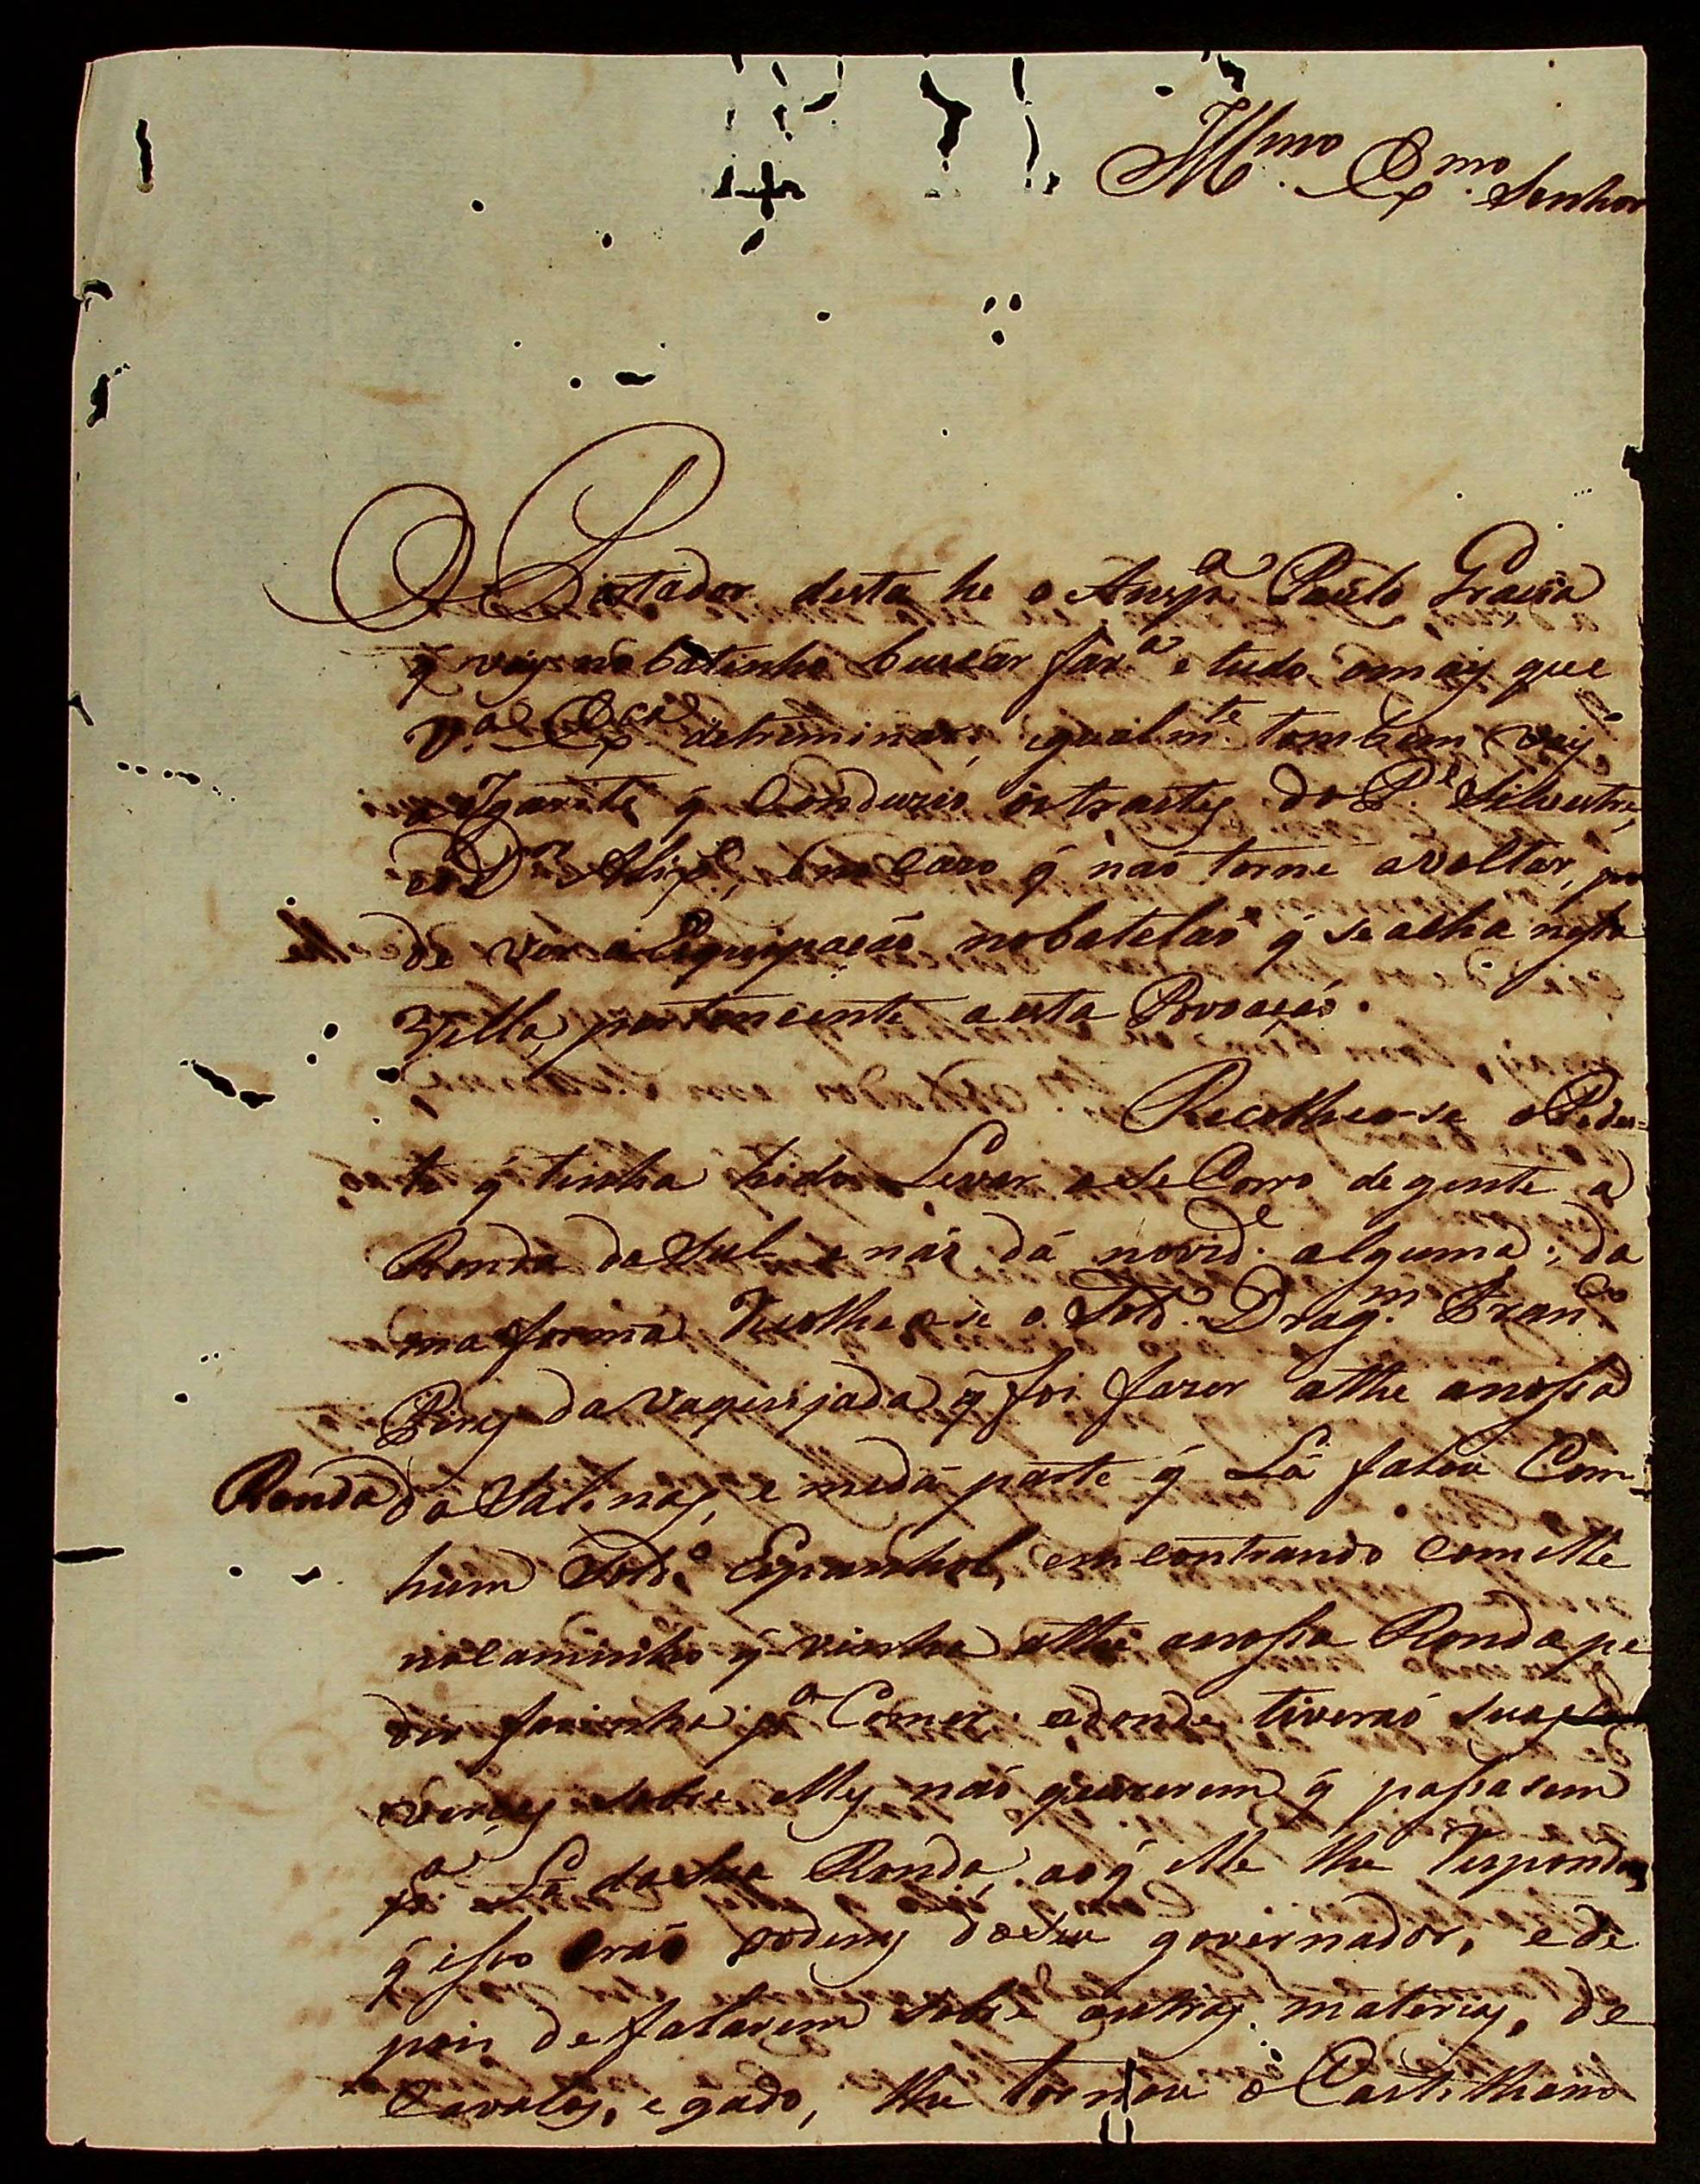 Illmo. Exmo. Senhor
O Portador desta he o Anspa. Paulo Gracia
q̃ vay no botinho buscar fara. e tudo omay que
V.a Exca. detriminar, igualmte. tombem vay
a Igarite q̃ Conduzio os trastes do Pe. Silvestre,
e do Dor. , e no Cazo q̃ naõ torne avoltar, po
de vir a Equipaçaõ no batelaõ q̃ se acha nesta
Villa, pertencente a esta Povoaçaõ.
Recolheo-se o Pedes=
te q̃ tinha hido Levar o SeCorro de gente a
Ronda do Sul e naõ dá novide. alguma; da
ma forma Recolheo-se o Sold. Dragm. Franco
Pires da vaqueijada q̃ foi fazer athe anossa
Ronda da Salinas, e medá parte q̃ Lá falou Com
hum Sold.o Espanhol, emcontrando Comelle
noCaminho q̃ vinha athe anossa Ronda pe
dir farinha pa. Comer. adonde tiveraõ suas
sobre elles naõ quererem q̃ passasem
pa. Lá dasua Ronda, aoq̃ elle lhe Respondeo
q̃ isso eraõ ordens doSeu governador, ede
pois defalarem sobre outras materias, de
Cavalos, e gado, lhe tornou o Castilhano